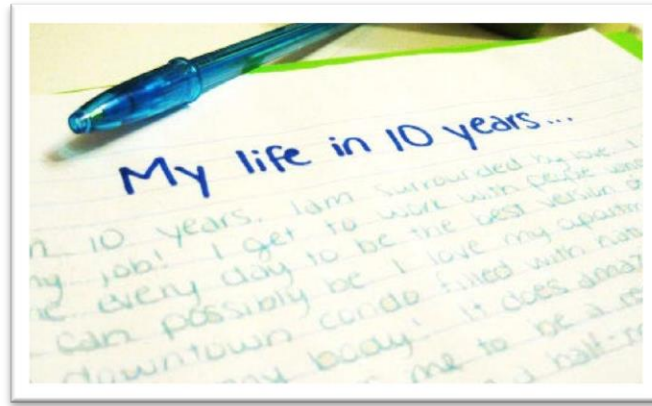 My life in 10 years...
10 years. I am surrounded by love. I
job! I get to work with people
every day to be the best version
can possibly be I love my
downtown condo filled with
my body! It does
me to be a
a